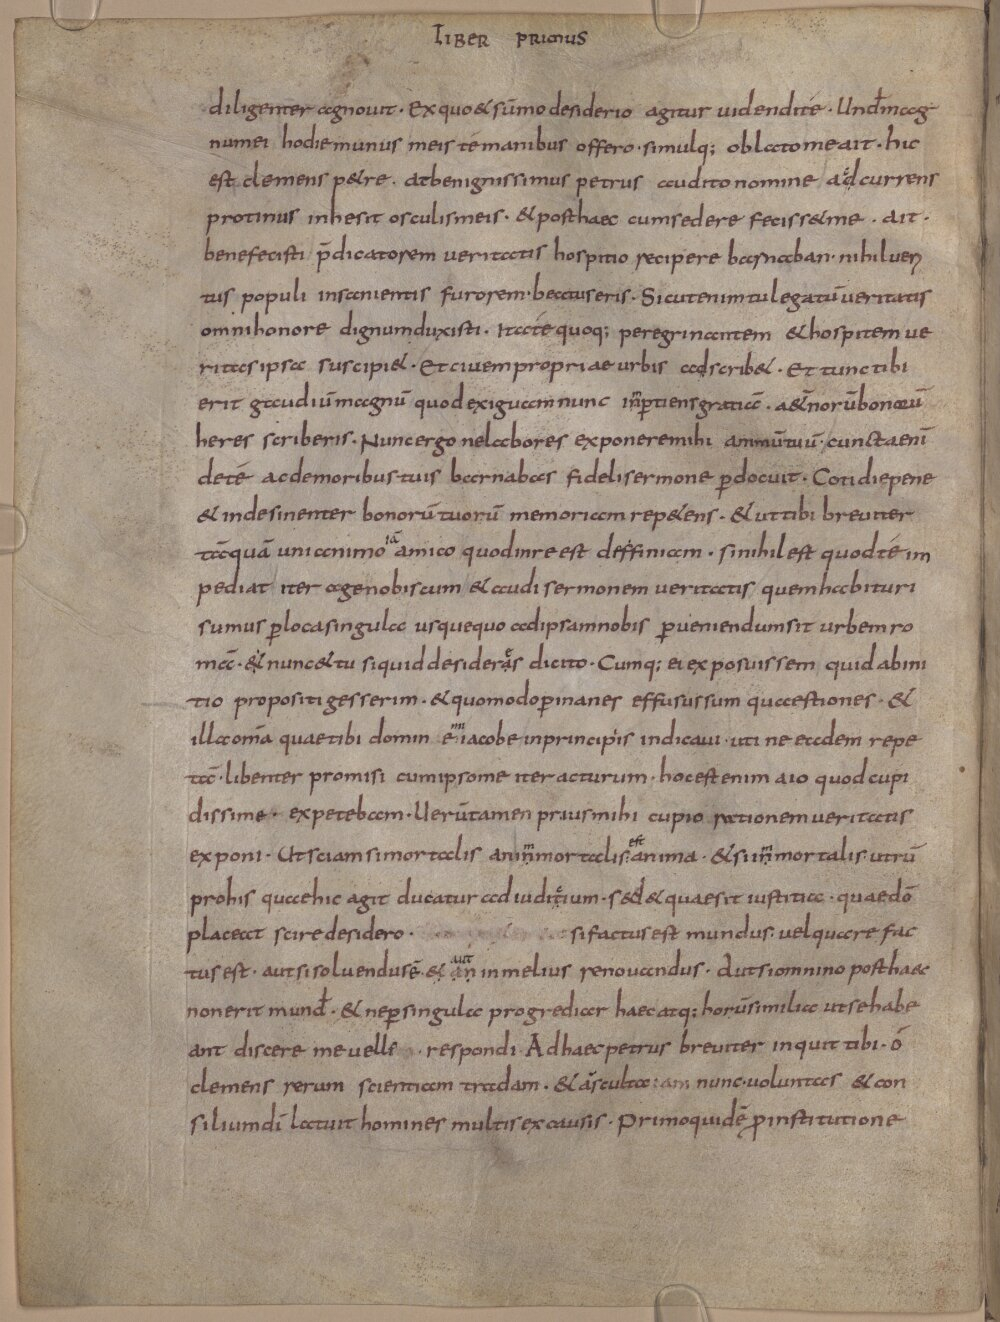 LIBER PRIMUS
diligenter agnouit · Exquo & sūmo desiderio agitur uidendi té · Und̄ mag
numei hodie munus meis té manibus offero · simulq; oblatome ait · hic
est clemens p&re · at benignissimus petrus audito nomine adcurrens
protinus inhesit osculis meis · & posthaec cum sedere feciss&me · ait ·
benefecisti p̄dicatorem ueritatis hospitio recipere barnaban · nihil ueri
tus populi insanientis furorem · beatus eris · Sicut enim tu legatū ueritatis
omni honore dignum duxisti · Ita té quoq; peregrinantem & hospitem ue
ritas ipsa suscipi& · Et ciuem propriae urbis adscrib& · Et tunc tibi
erit gaudiū magnū quod exiguam nunc inp̄tiens gratiā · a&ernorū bonorū
heres scriberis · Nunc ergo ne labores exponere mihi anmūtuū · cuncta enī
de té ac de moribus tuis barnabas fideli sermone p̄docuit · Cotidie pene
& indesinenter bonorū tuorū memoriam rep&ens · & ut tibi breuiter
tāquā unianimo iā amico quod inre est deffiniam · si nihil est quod té im
pediat iter age nobiscum & audi sermonem ueritatis quem habituri
sumus p̱ loca singula usquequo ad ipsam nobis p̱ueniendum sit urbem ro
mā · & nunc & tu siquid desideres dicito · Cumq; ei exposuissem quid ab ini
tio propositi gesserim · & quomodo p̱ inanes effusus sum quaestiones · &
illa om̄a quae tibi domine mi iacobe in principiis indicaui · uti ne eadem repe
tā · libenter promisi cum ipso me iter acturum · hoc est enim aio quod cupi
dissime · expetebam · Uerūtamen prius mihi cupio rationem ueritatis
exponi · Ut sciam si mortalis an inmortalis est anima · & si inmortalis utrū
pro his quae hic agit ducatur ad iudicium · sed & quae sit iustitia · quae dō
placeat scire desidero · si factus est mundus uel quare fac
tus est · aut si soluendus ē · & aut an in melius renouandus · Aut si omnino posthaec
non erit mund̄ · & ne p̱ singula progrediar haec atq; horū similia ut se habe
ant discere me uelle · respondi · Ad haec petrus breuiter inquit tibi · ó
clemens rerum scientiam tradam · & asculta iam nunc · uoluntas & con
silium dī latuit homines multis ex causis · Primo quidē p̱ institutione